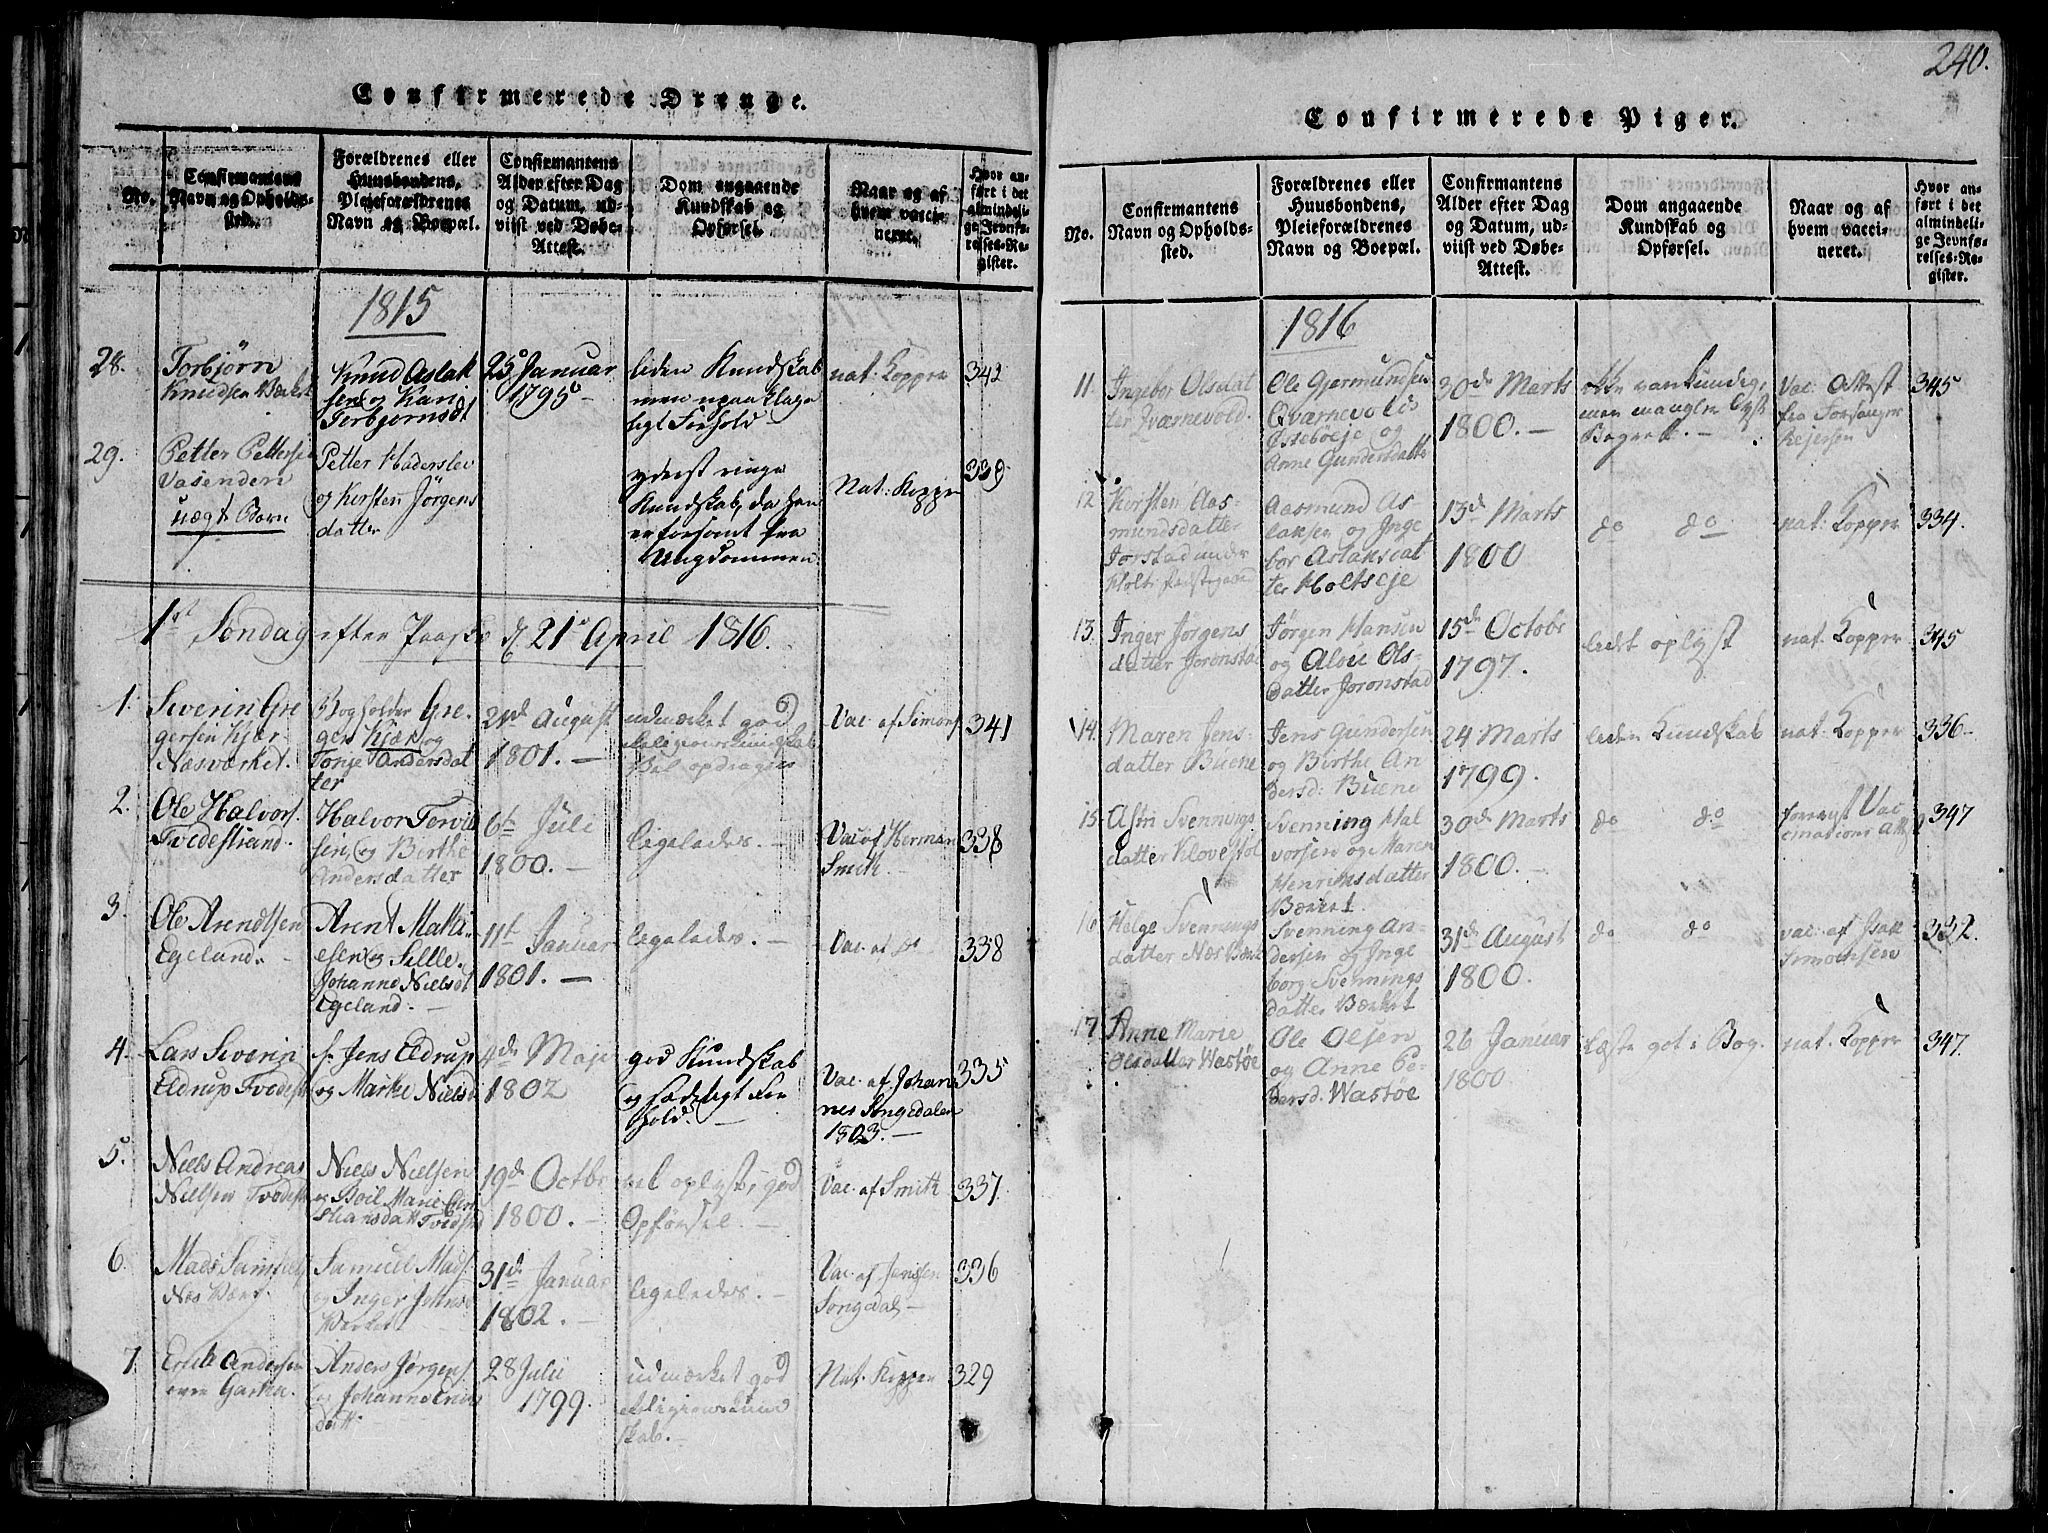 240.
Confirmerede Drenge.
No.
Confirmantens
Navn og Opholds-
sted.
Forældrenes eller
Huusbondens,
Pleieforældrenes
Navn og Boepæl.
Confirmantens
Alder efter Dag
og Datum, ud-
viist ved Døbe-
Attest.
Dom angaaende
Kundskab og
Opførsel.
Naar og af
hvem vacci-
neret.
Hvor an-
ført i det
almindeli-
ge Jevnfø-
relses-Re-
gister.
1815
28.
Torbjørn
Knudsen
Knud Aslak
sen og Kari
Torbjørnsdt
25 Januar
1795
liden Kundskab
men upaaklage
ligt Forhold
nat: Kopper
342
29.
Petter Pettersen
Vasenden
uægt. Barn
Petter Haderslev
og Kersten Jörgens
datter
yderst ringe
Kundskab, da han
er forsømt fra
Ungdommen
Nat: Kopper
339
1st Søndag efter Paaske d. 21 April 1816.
1.
Severin Gre
gersen Kjær
Næsværket.
Bogholder Gre-
gers Kjær og
Tonje Andersdat
ter
21d August
1801. —
udmærket god
Religionskundskab
Vel opdragen
Vac. af Simons
341
2.
Ole Halvors.
Tvedestrand.
Halvor Tervie
sen, og Birthe
Andersdatter
6t Juli
1800. —
ligeledes. —
Vac af Herman
Smith.
338
3.
Ole Arendtsen
Egeland.
Arent Mathi-
esen og Sille
Johanne Nielsdt
Egeland. —
11t Januar
1801. —
ligeledes. —
Vac. af do
338
4.
Lars Severin
Eldrup Tvedest
Jens Eldrup
og Marthe Nielsd
4de Maje
1802
god Kundskab
og sædeligt For
hold. —
Vac. af Johan
nes Songedalen
1803. —
335
5.
Niels Andreas
Nielsen Tvedest
Niels Nielsen
og Boil Marie Chri
stiansdatt Tvedstrd
19de Octbr
1800. —
vel oplyst, god
Opførsel. —
Vac. af Smith
337
6.
Mads Samuels
Nes Værk.
Samuel Mads.
og Inger Johns
Værket
31d Januar
1802. —
ligeledes. —
Vac. af Jenssen
Songedal —
336
7.
Erich Andersen
Anders Jørgens.
og Johanne
datt
28 Julii
1799.
udmærket god
Religionskund
skab. —
Nat. Kopper
329
Confirmerede Piger.
No.
Confirmantens
Navn og Opholds-
sted.
Forældrenes eller
Huusbondens,
Pleieforældrenes
Navn og Boepæl.
Confirmantens
Alder efter Dag
og Datum, ud-
viist ved Døbe-
Attest.
Dom angaaende
Kundskab og
Opførsel.
Naar og af
hvem vacci-
neret.
Hvor an-
ført i det
almindeli-
ge Jevnfø-
relses-Re-
gister.
1816
11.
Ingebor Olsdat
ter Qværnevold.
Ole Gjermundsen
Qværnevolds
Østebøeje og
Anne Gundersdatter
30de Marts
1800. —
ikke vankundig,
men mangler lyst
Begreb. —
Vac. Attest
fra Forsanger
Rejersen
345
12
Kirsten Aas-
mundsdatter
Torstad under
Holt Præstegaard
Aasmund As
laksen og Inge
bor Aslaksdat
ter Holtseje
13de Marts
1800
do do
nat: Kopper
334.
13.
Inger Jørgens
datter Joronstad
Jørgen Hansen
og Alou Ols-
datter Joronstad
15de Octobr
1797.
lidet oplyst
nat. Kopper
345
14.
Maren Jens-
datter Buene
Jens Gundersen
og Birthe An
dersd: Buene
24 Marts
1799.
liden Kundskab
nat: Kopper
336
15.
Astri Svennings
datter Klovestol
Svenning Hal
vorsen og Maren
Henriksdatter
Værket.
30de Marts
1800. —
do do
foreviist Vac
cinations Att
347
16
Helge Svennings
datter Næs Værk
Svenning An-
dersen og Inge
borg Svennings
datter Værket
31de August
1800.
do do
vac. af Isak
Simonsen
332.
17
Anne Marie
Olsdatter Wastøe
Ole Olsen
og Anne Pe-
dersd. Wastøe
26 Januar
1800
Læste got i Bog.
nat. Kopper
347.